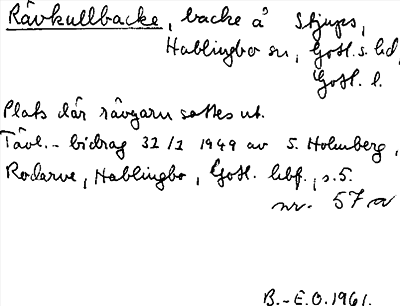 Rävkullbacke, backe å Stjups,
Hablingbo sn, Gotl. s. hd,
Gotl. l.
Plats där rävgarn sattes ut.
Tävl.-bidrag 31/1 1949 av S. Holmberg,
Rodarve, Hablingbo, Gotl. hbf., s. 5.
nr. 57 a
B.-E.O. 1961.